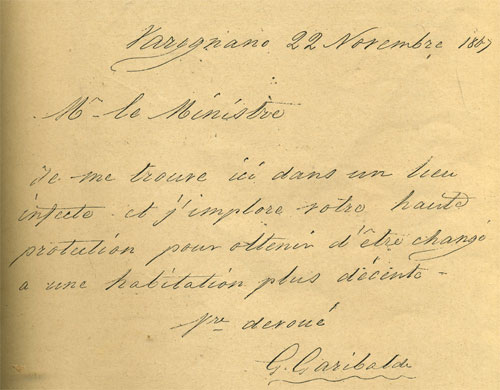 Varegnano 22 Novembre 1867
Mr le Ministre
Je me trouve ici dans un lieu
infecte et j'implore votre haute
protection pour ottenir d'être changé
a une habitation plus décente -
Vre devoué
G. Garibaldi